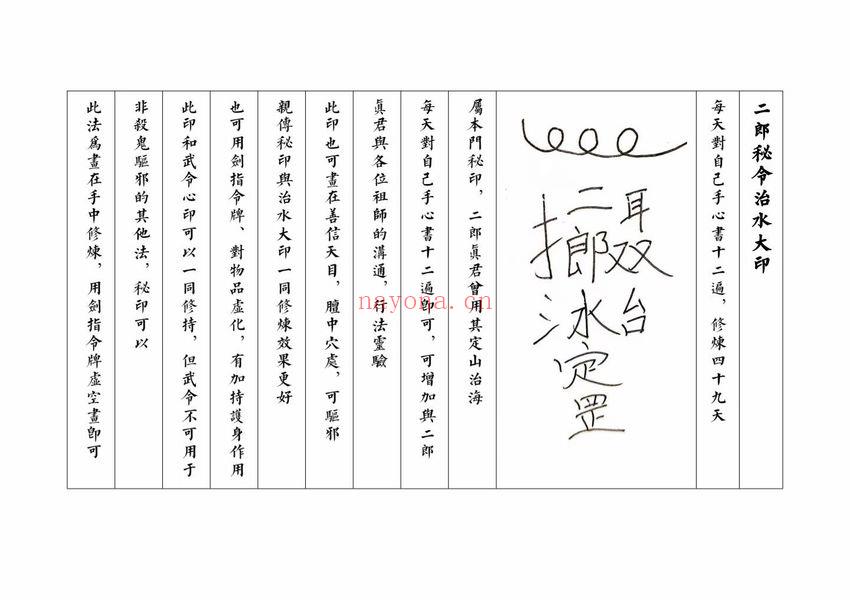 二郎秘令治水大印
每天對自己手心書十二遍，修煉四十九天
聂台
二
定罡
屬本門秘印，二郎眞君曾用其定山治海
每天對自己手心書十二遍即可，可增加與二郎
眞君與各位祖師的溝通，行法靈驗
此印也可畫在善信天目，膻中穴處，可驅邪
親傳秘印與治水大印一同修煉效果更好
也可用劍指令牌、對物品虛化，有加持護身作用
此印和武令心印可以一同修持，但武令不可用于
非殺鬼驅邪的其他法，秘印可以
此法爲畫在手中修煉，用劍指令牌虛空畫即可
nayona.cn